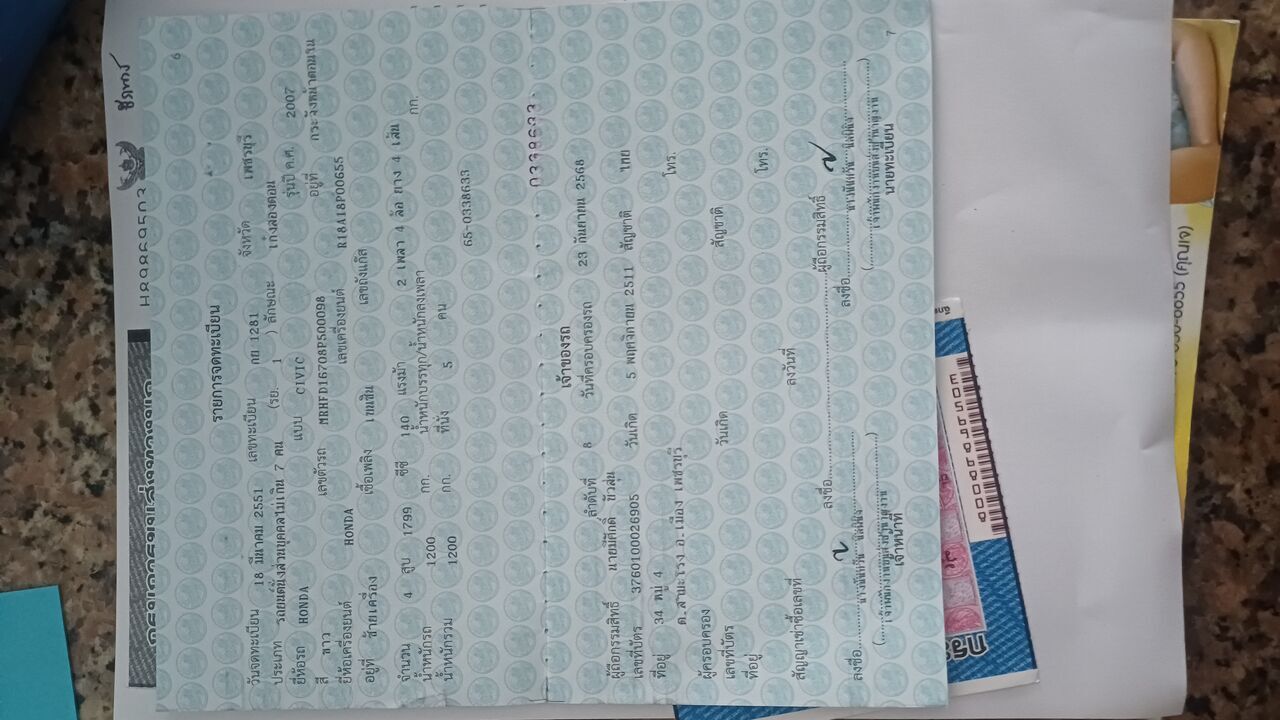 6
รายการจดทะเบียน
วันจดทะเบียน 18 มีนาคม 2551 เลขทะเบียน กย 1281 จังหวัด เพชรบุรี
ประเภท รถยนต์นั่งส่วนบุคคลไม่เกิน 7 คน (รย. 1 ) ลักษณะ เก๋งสองตอน
ยี่ห้อรถ HONDA แบบ CIVIC รุ่นปี ค.ศ. 2007
สี ขาว เลขตัวรถ MRHFD16708P500098 อยู่ที่
ยี่ห้อเครื่องยนต์ HONDA เลขเครื่องยนต์ R18A18P00655
อยู่ที่ ซ้ายเครื่อง เชื้อเพลิง เบนซิน เลขถังแก๊ส
จำนวน 4 สูบ 1799 ซีซี 140 แรงม้า 2 เพลา 4 ล้อ ยาง 4 เส้น
น้ำหนักรถ 1200 กก. น้ำหนักบรรทุก/น้ำหนักลงเพลา กก.
น้ำหนักรวม 1200 กก. ที่นั่ง 5 คน
65-0338633
0338633
เจ้าของรถ
ลำดับที่ 8 วันที่ครอบครองรถ 23 กันยายน 2568
ผู้ถือกรรมสิทธิ์
เลขที่บัตร 3760100026905 วันเกิด 5 พฤศจิกายน 2511 สัญชาติ ไทย
ที่อยู่ 34 หมู่ 4 โทร.
อ.เมือง เพชรบุรี
ผู้ครอบครอง
เลขที่บัตร วันเกิด สัญชาติ
ที่อยู่ โทร.
สัญญาเช่าซื้อเลขที่ ลงวันที่
ลงชื่อ ผู้ถือกรรมสิทธิ์
ลงชื่อ ลงชื่อ
เจ้าหน้าที่ นายทะเบียน
7